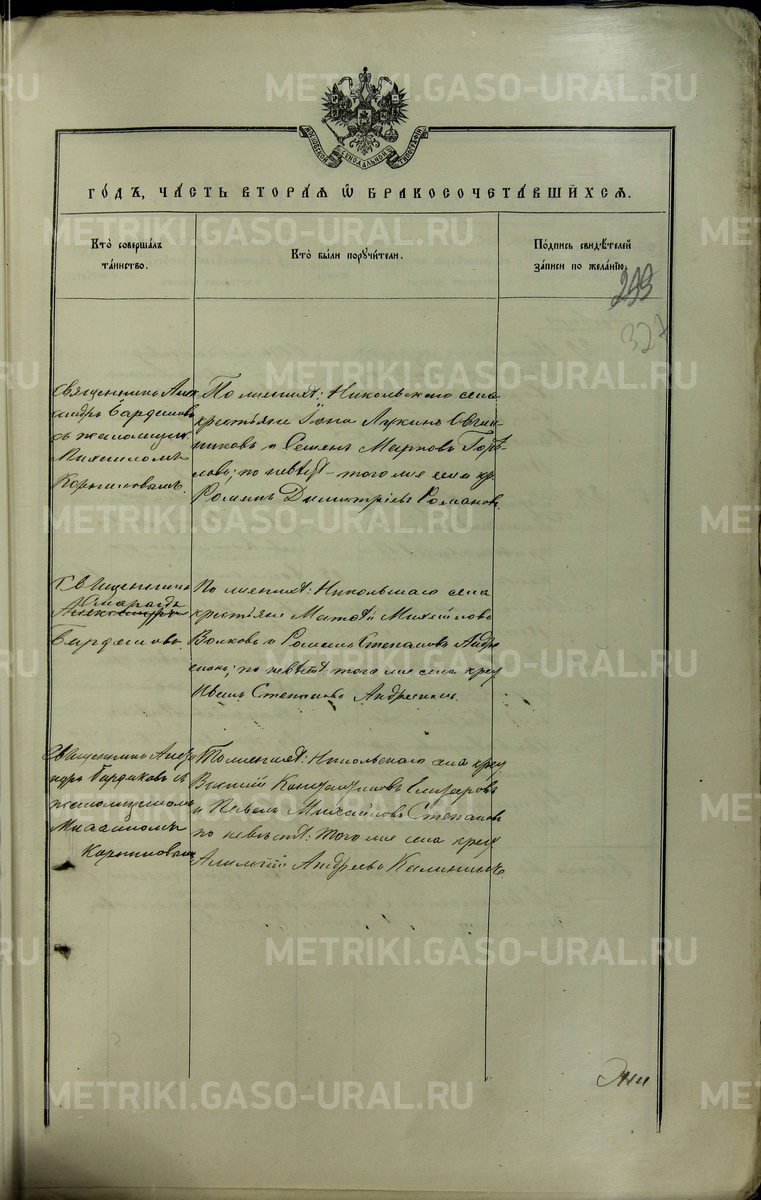 МОСКОВСКОЙ СѴНОДАЛЬНОЙ ТИПОГРАФІИ
ГОДЪ, ЧАСТЬ ВТОРАЯ Ѡ БРАКОСОЧЕТАВШИХСЯ.
Кто совершалъ таинство.
Кто были поручители.
Подпись свидѣтелей записи по желанію.
299
327
Священникъ Алек
сандръ Бардаковъ
съ псаломщик.
Михаиломъ
Корниловымъ.
По женихѣ: Никольскаго села
крестьяне Іона Лукинъ
и Семенъ Марковъ
по невѣстѣ – того же села кр.
Романъ Димитріевъ Романовъ
Священникъ
Бардаковъ
По женихѣ: Никольскаго села
крестьяне Матѳій Михайловъ
Волковъ и Романъ Степановъ Андре
по невѣстѣ того же села крес
Иванъ Степановъ
Священникъ Алекса
ндръ Бардаковъ съ
псаломщикомъ
Михаиломъ
Корниловымъ
По женихѣ: Никольскаго села крес
Василій
и Павелъ Михайловъ Степановъ
по невѣстѣ: того же села крес
Андреевъ Калининъ
METRIKI.GASO-URAL.RU